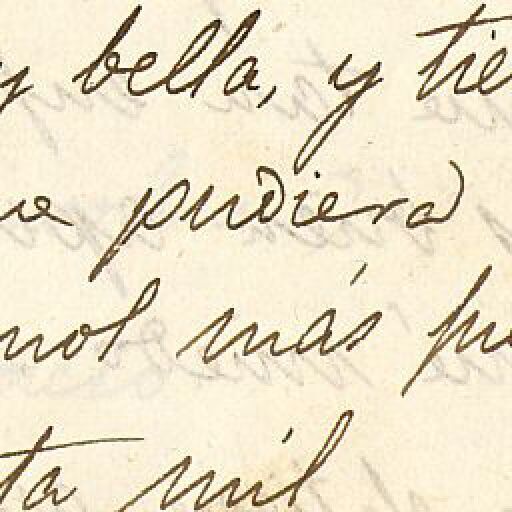 y bella, y tie
ue pudiera
nol más pu
ta mil